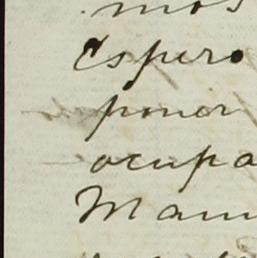 mos
Espero
poner
ocupa
Manu